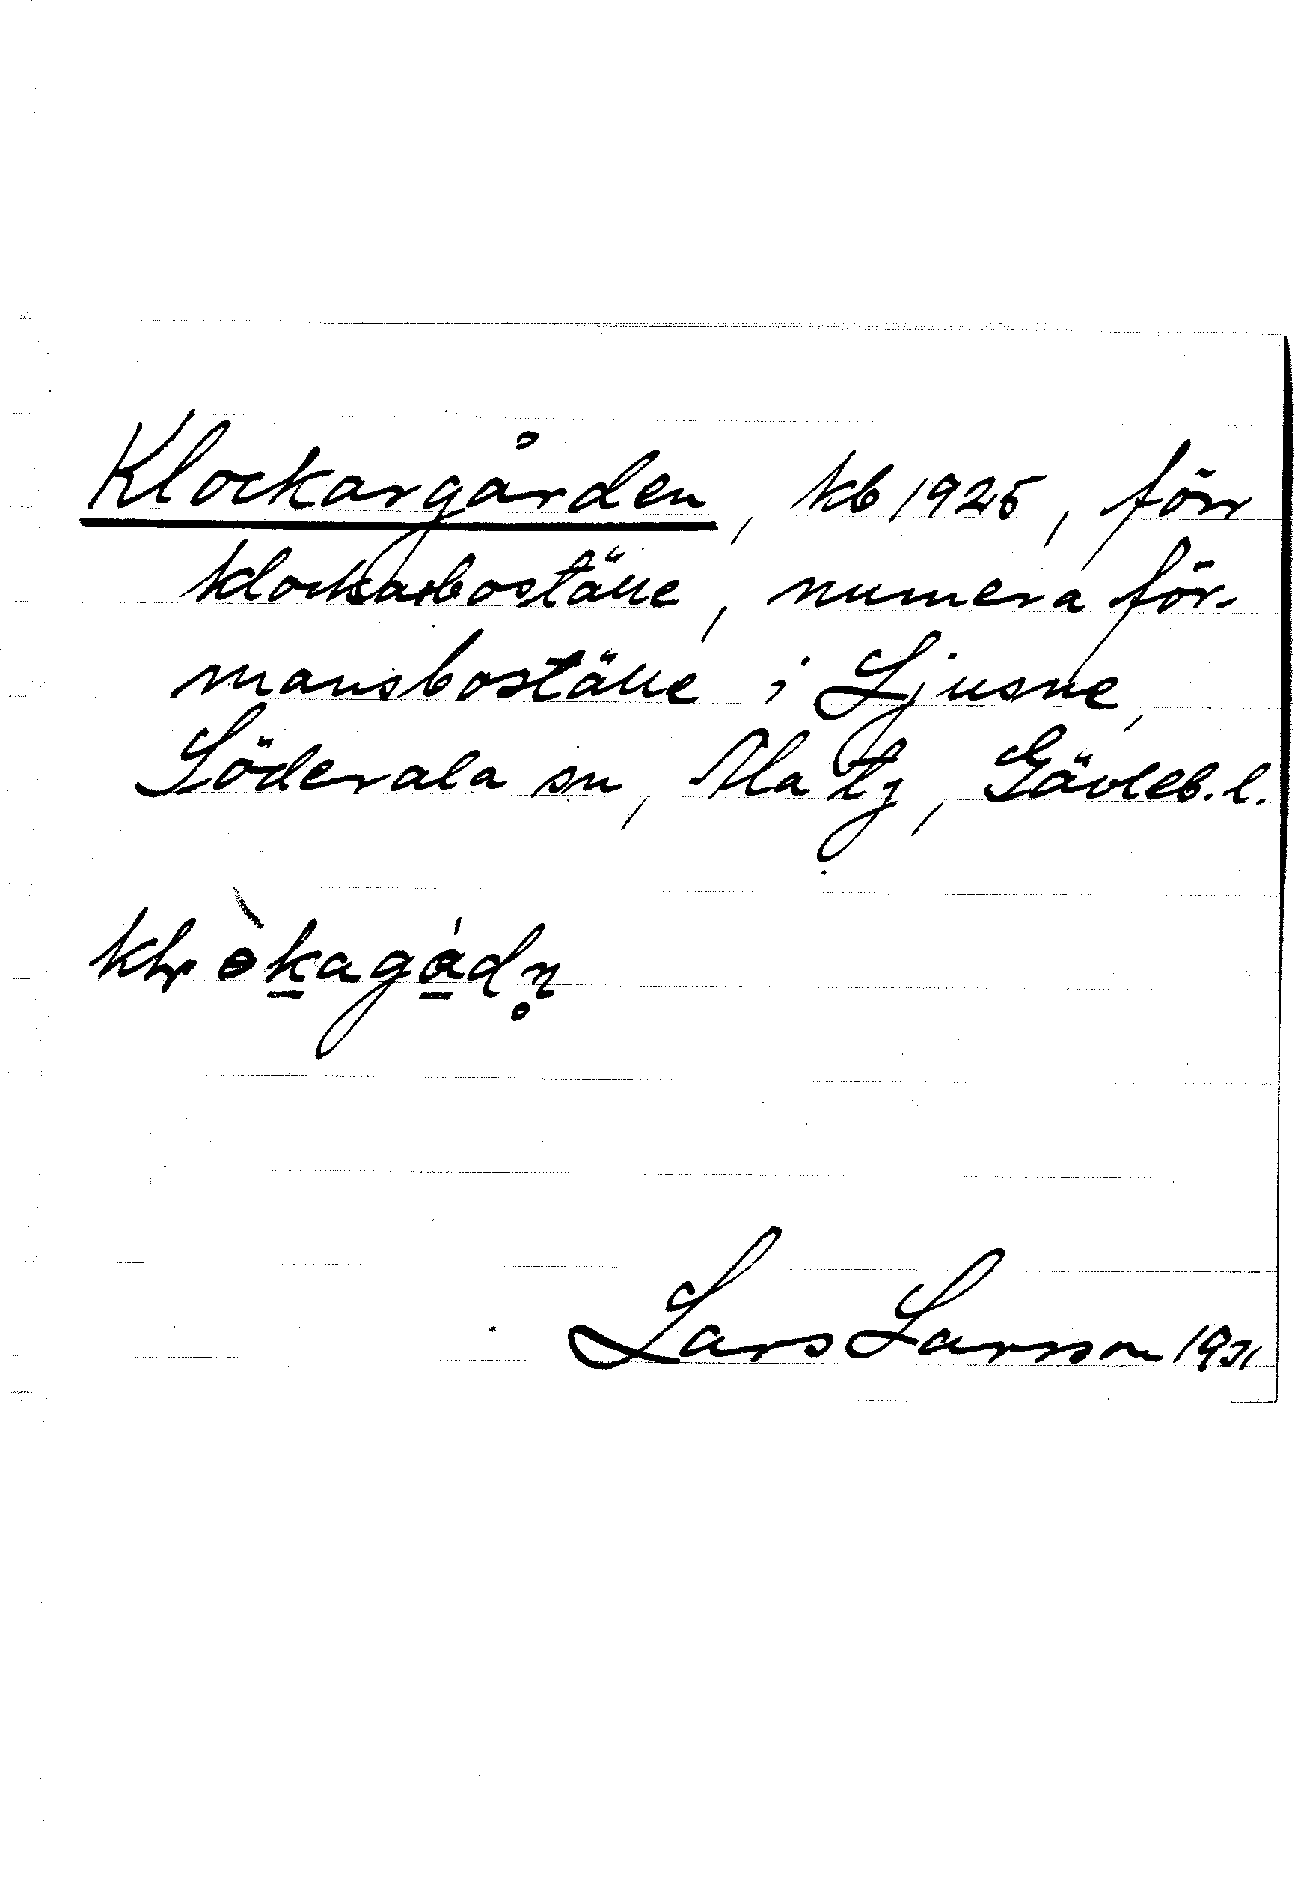 Klockargården, kb 1925, förr
klockarboställe, numera för-
mansboställe i Ljusne,
Söderala sn, Ala tg, Gävleb. l.
Lars Larsson